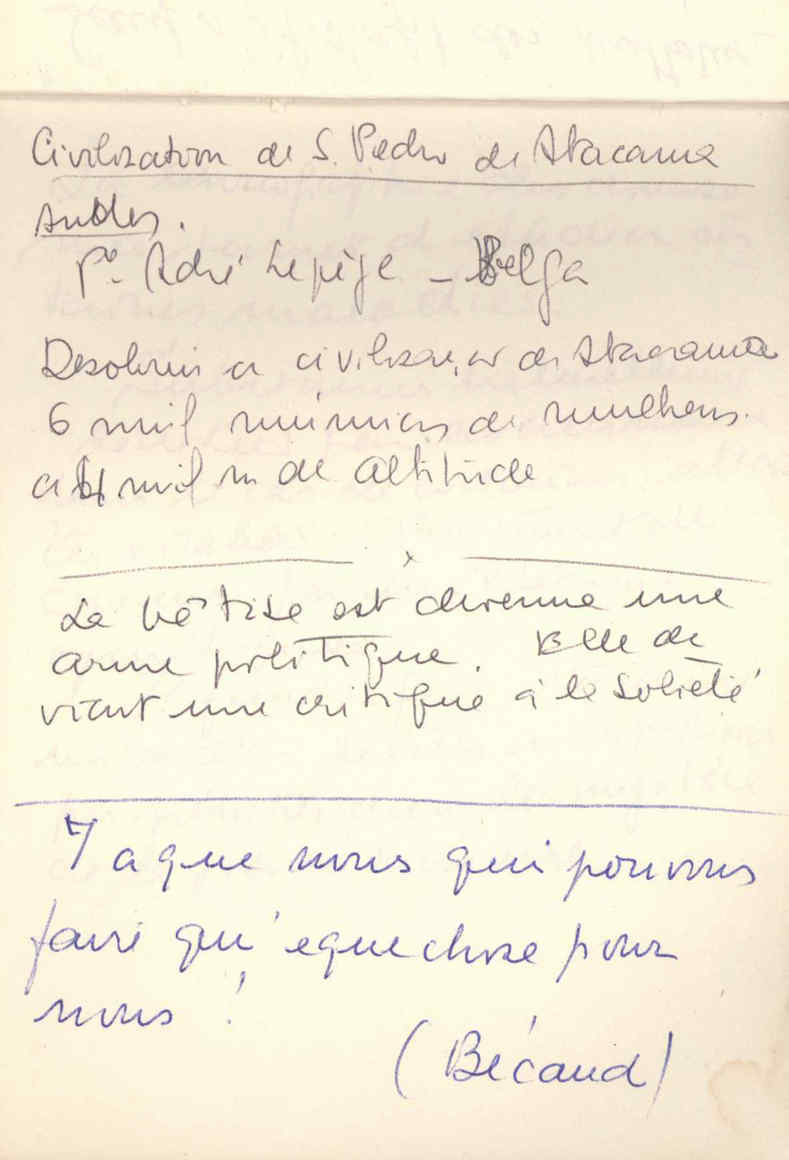 Civilization de S. Pedro de Atacama
Andes.
Pe. Adré Lepège - Belga
Descobriu a civilização de Atacama
6 mil múmias de mulheres.
a 4 mil m de altitude
x
La bêtise est devenue une
arme politique. Elle de
vient une critique à la Société
Y a que nous qui pouvons
faire qu'eque chose pour
nous !
(Bécaud)